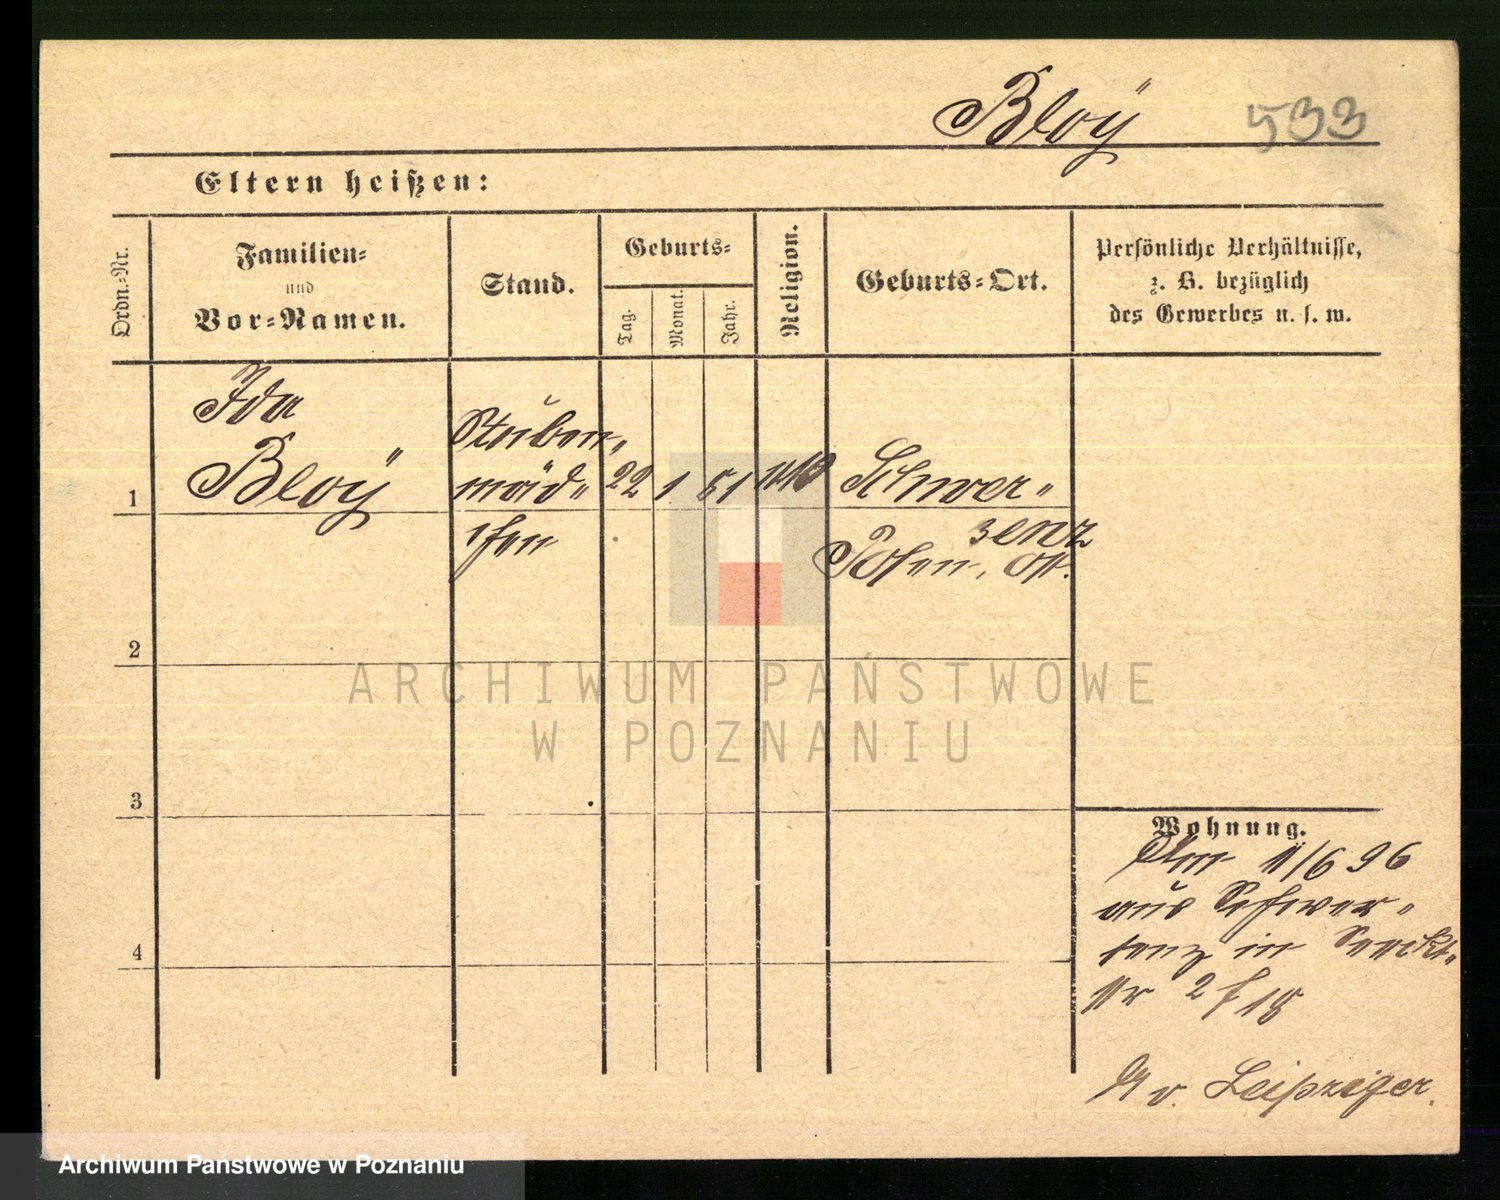 Bloÿ 533
Eltern heißen:
Ordn.-Nr.
Familien-
und
Vor-Namen.
Stand.
Geburts-
Tag.
Monat.
Jahr.
Religion.
Geburts-Ort.
Persönliche Verhältnisse,
z. B. bezüglich
des Gewerbes u. s. w.
1
Ida
Bloÿ
Stuben-
mäd-
chen
22 1 51
Schwer-
senz
Posen, Ost.
2
3
4
ARCHIWUM PAŃSTWOWE
W POZNANIU
Wohnung.
11/6 96
aus Schwer-
senz in
Nr 2 f 18
v. Leipziger.
Archiwum Państwowe w Poznaniu